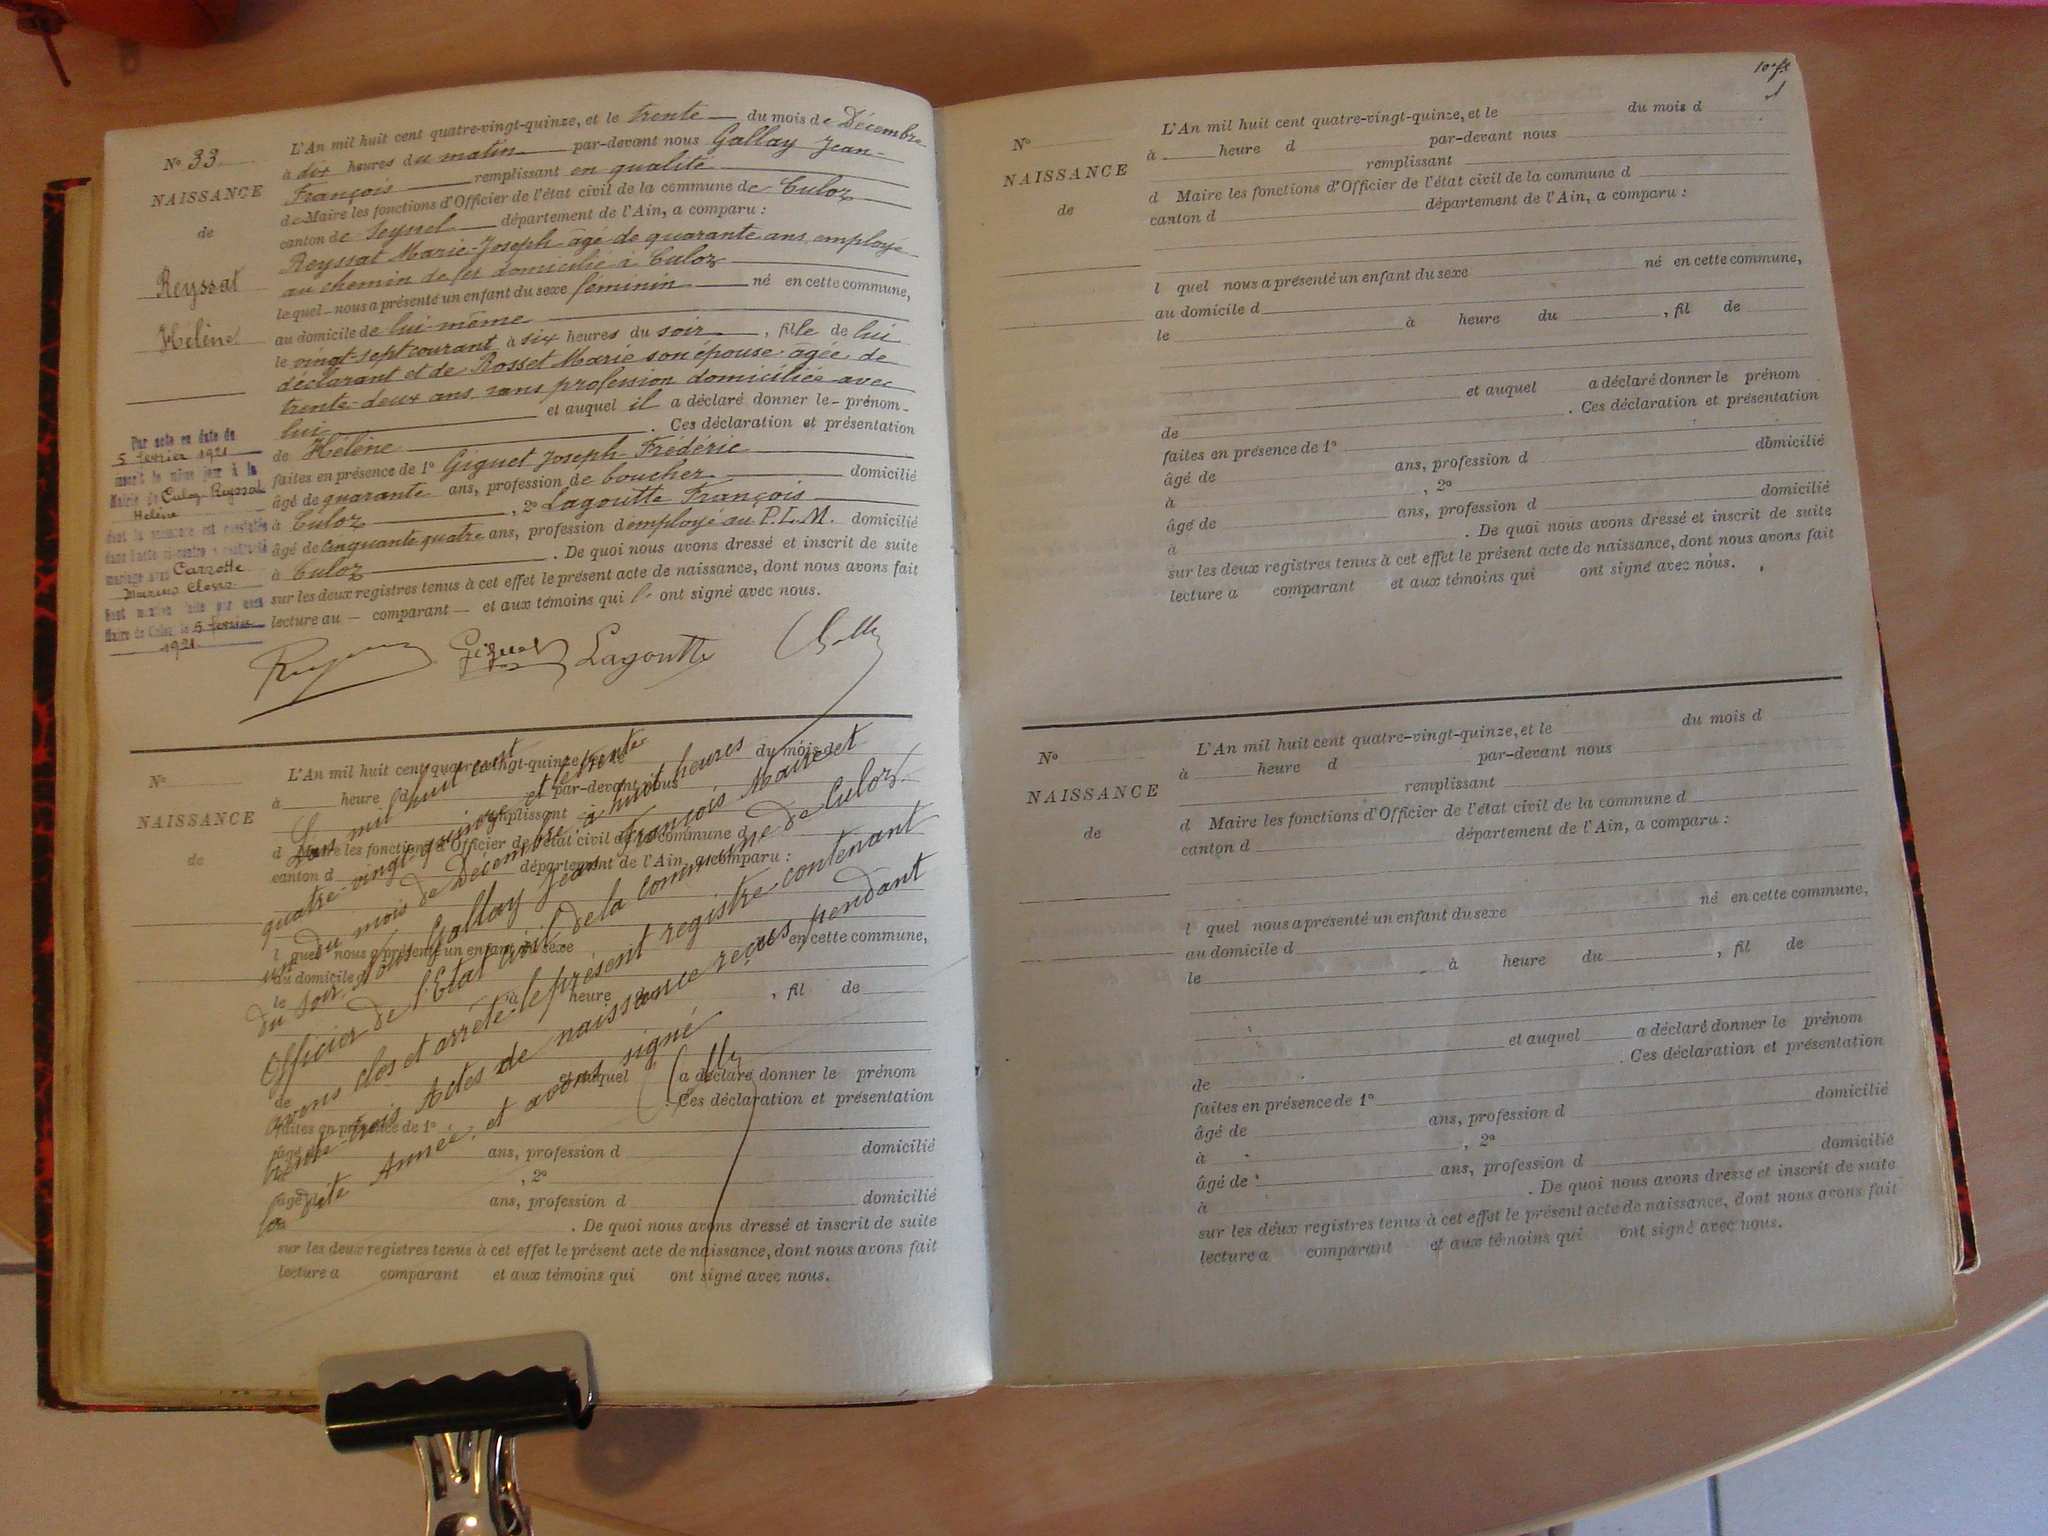 N° 33
NAISSANCE
de
Reyssat
Hélène
L'An mil huit cent quatre-vingt-quinze, et le trente du mois de Décembre
à dix heures du matin par-devant nous Gallay Jean-
François remplissant en qualité
de Maire les fonctions d'Officier de l'état civil de la commune de Culoz
canton de Seyssel département de l'Ain, a comparu :
Reyssat Marie-Joseph âgé de quarante ans, employé
au chemin de fer domicilié à Culoz
lequel nous a présenté un enfant du sexe féminin né en cette commune,
au domicile de lui-même
le vingt-sept courant à six heures du soir, fille de lui
déclarant et de Rosset Marie son épouse âgée de
trente-deux ans sans profession domiciliée avec
lui et auquel il a déclaré donner le prénom
de Hélène. Ces déclaration et présentation
faites en présence de 1° Giguet Joseph Frédéric
âgé de quarante ans, profession de boucher domicilié
à Culoz, 2° Lagoutte François
âgé de cinquante quatre ans, profession d'employé au P.L.M. domicilié
à Culoz. De quoi nous avons dressé et inscrit de suite
sur les deux registres tenus à cet effet le présent acte de naissance, dont nous avons fait
lecture au comparant et aux témoins qui ont signé avec nous.
Par acte en date du
5 février 1921
inscrit le même jour à la
Mairie de Culoz Reyssat
Hélène
dont la naissance est constatée
dans l'acte ci-contre a contracté
mariage avec Carrette
Maire de Culoz le 5 février
1921
Giguet Lagoutte
N°
NAISSANCE
de
L'An mil huit cent quatre-vingt-quinze, et le du mois d
à heure d par-devant nous
remplissant
d Maire les fonctions d'Officier de l'état civil de la commune d
canton d département de l'Ain, a comparu :
l quel nous a présenté un enfant du sexe né en cette commune,
au domicile d
le à heure du , fil de
et auquel a déclaré donner le prénom
de . Ces déclaration et présentation
faites en présence de 1°
âgé de ans, profession d domicilié
à , 2°
âgé de ans, profession d domicilié
à . De quoi nous avons dressé et inscrit de suite
sur les deux registres tenus à cet effet le présent acte de naissance, dont nous avons fait
lecture a comparant et aux témoins qui ont signé avec nous.
L'an mil huit cent
quatre-vingt-quinze et le trente
un du mois de Décembre à huit heures
du soir, nous Gallay Jean François Maire et
Officier de l'Etat civil de la commune de Culoz
avons clos et arrêté le présent registre contenant
trente-trois Actes de naissance reçus pendant
la dite Année, et avons signé
10e ft
N°
NAISSANCE
de
L'An mil huit cent quatre-vingt-quinze, et le du mois d
à heure d par-devant nous
remplissant
d Maire les fonctions d'Officier de l'état civil de la commune d
canton d département de l'Ain, a comparu :
l quel nous a présenté un enfant du sexe né en cette commune,
au domicile d
le à heure du , fil de
et auquel a déclaré donner le prénom
de . Ces déclaration et présentation
faites en présence de 1°
âgé de ans, profession d domicilié
à , 2°
âgé de ans, profession d domicilié
à . De quoi nous avons dressé et inscrit de suite
sur les deux registres tenus à cet effet le présent acte de naissance, dont nous avons fait
lecture a comparant et aux témoins qui ont signé avec nous.
N°
NAISSANCE
de
L'An mil huit cent quatre-vingt-quinze, et le du mois d
à heure d par-devant nous
remplissant
d Maire les fonctions d'Officier de l'état civil de la commune d
canton d département de l'Ain, a comparu :
l quel nous a présenté un enfant du sexe né en cette commune,
au domicile d
le à heure du , fil de
et auquel a déclaré donner le prénom
de . Ces déclaration et présentation
faites en présence de 1°
âgé de ans, profession d domicilié
à , 2°
âgé de ans, profession d domicilié
à . De quoi nous avons dressé et inscrit de suite
sur les deux registres tenus à cet effet le présent acte de naissance, dont nous avons fait
lecture a comparant et aux témoins qui ont signé avec nous.